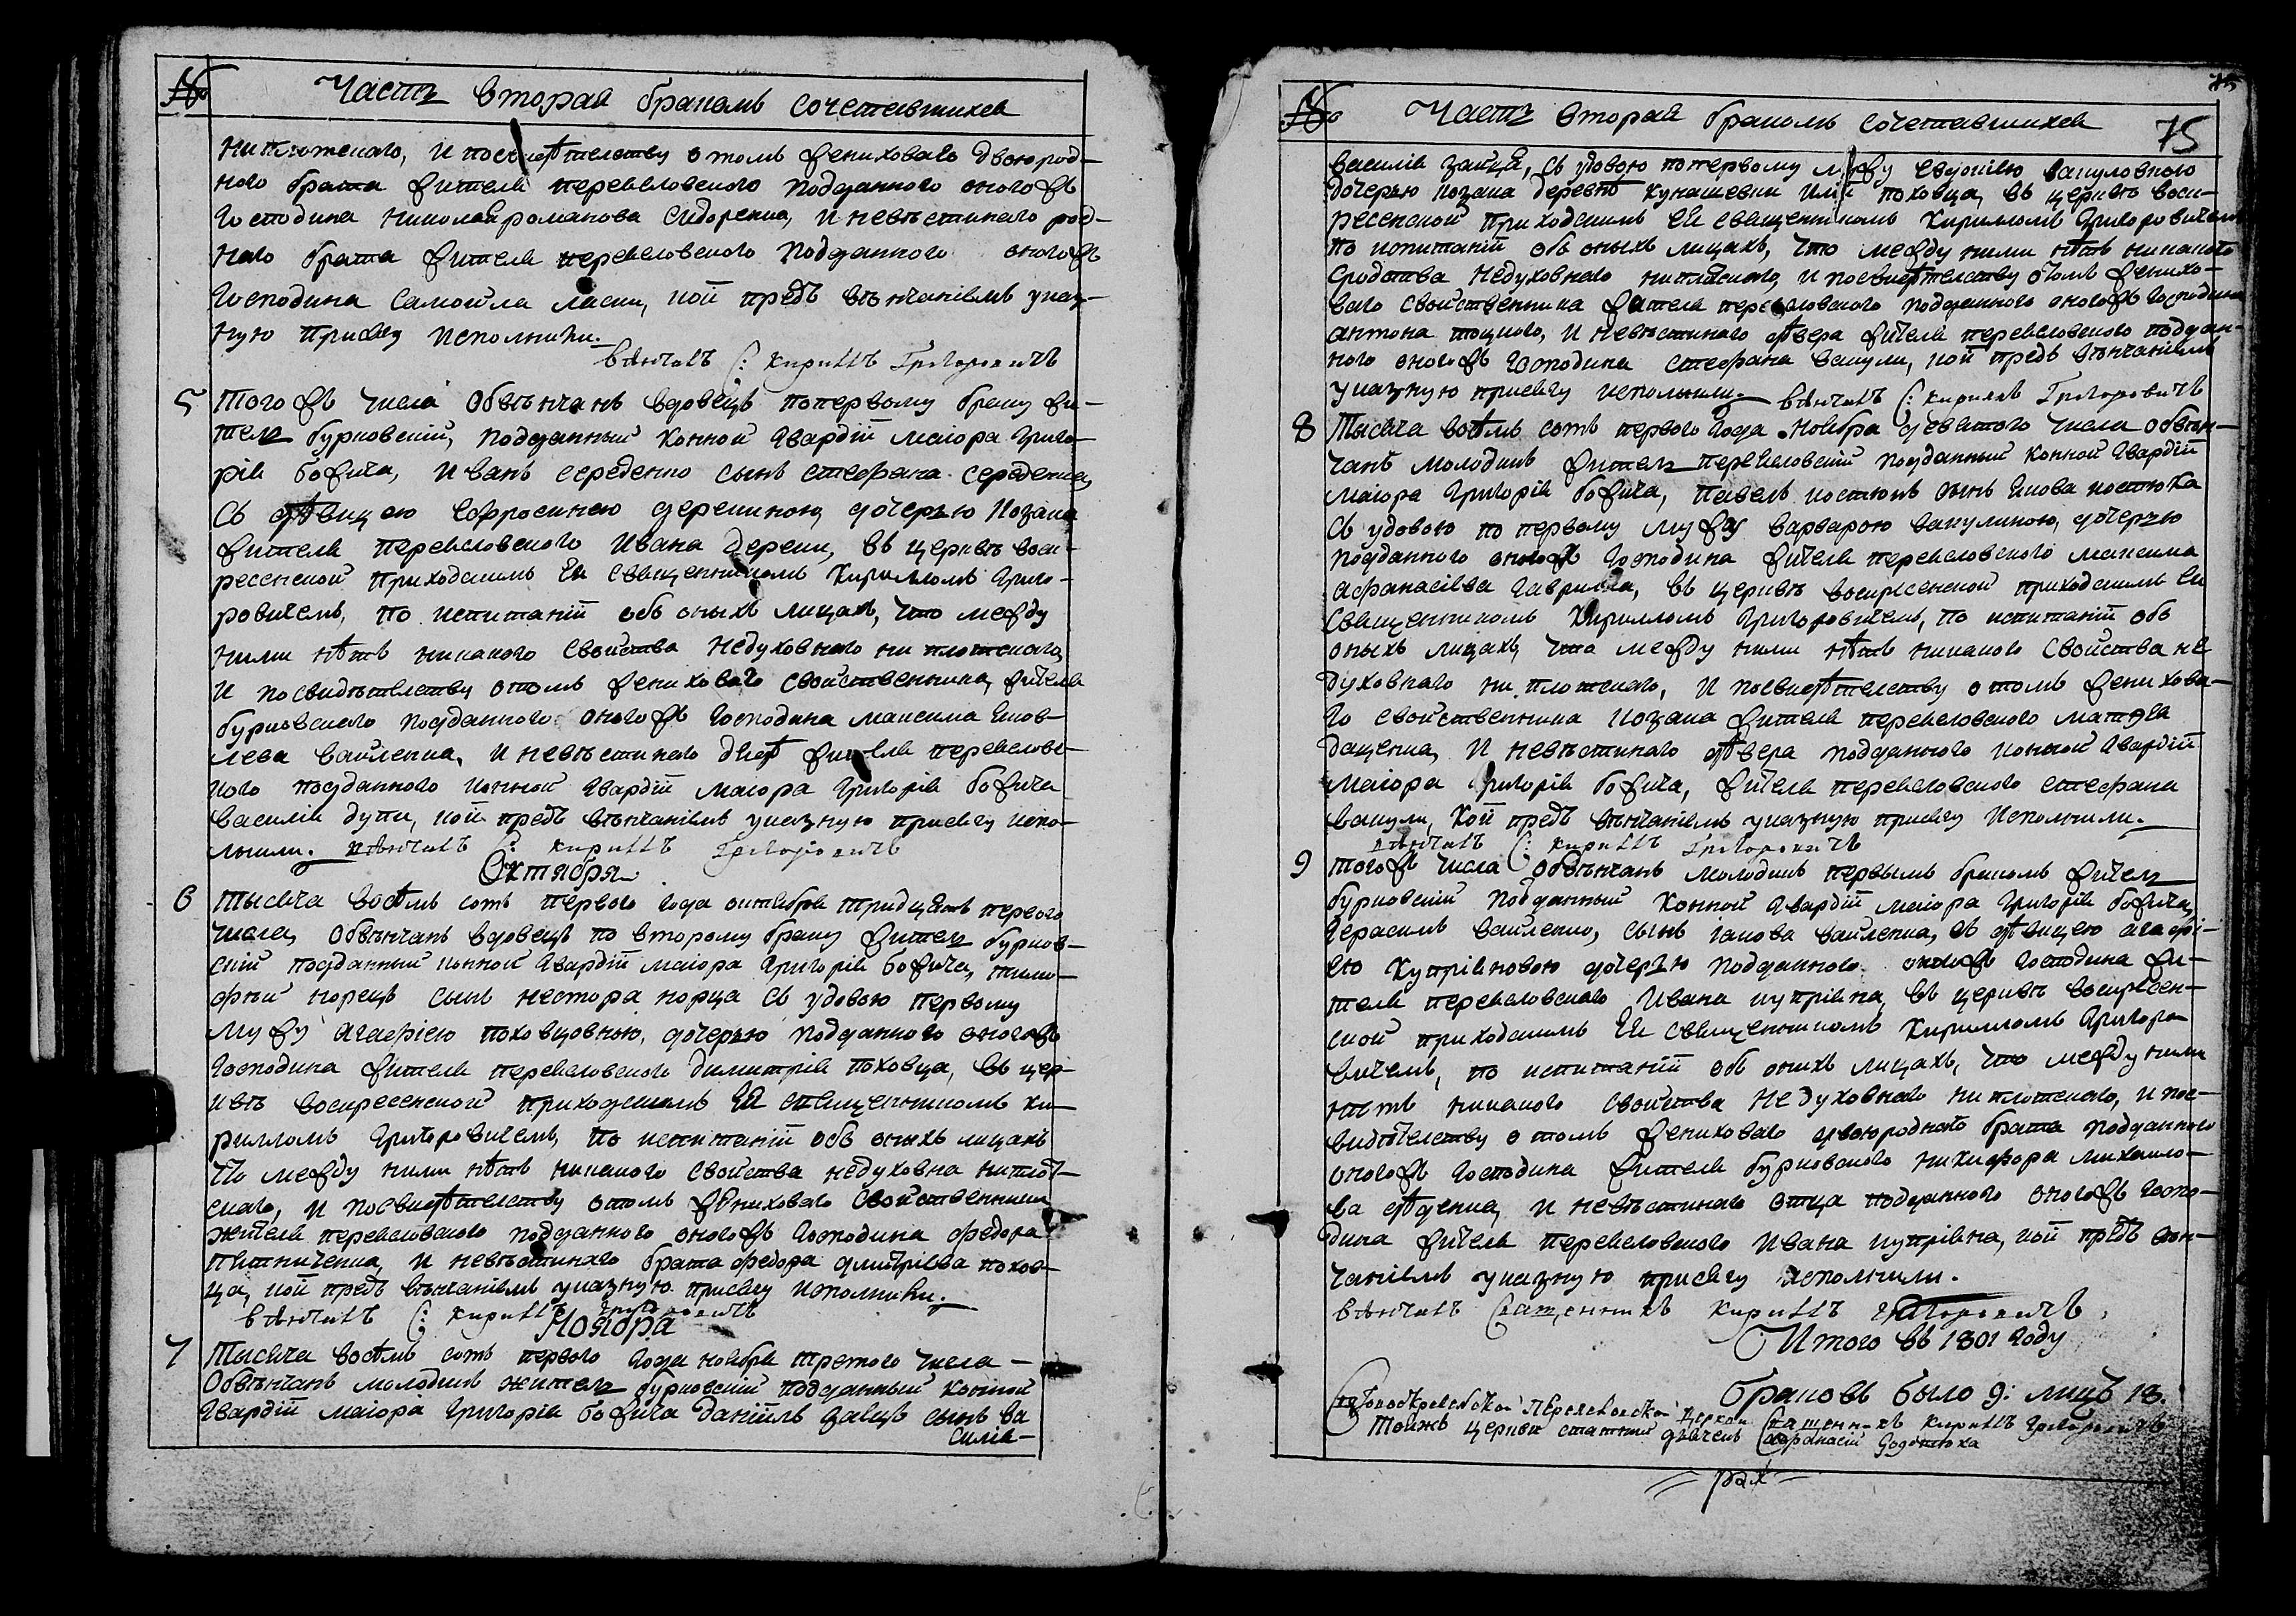 №
Часть вторая бракомъ сочетавшихся
ниплотскаго, и посвидѣтелству отомъ жениховаго двоюрод-
ного брата жителя переяславского подданного оногожъ
Господина Николая романова сидоренка, и невѣстинаго род-
наго брата жителя переяславского подданного оногожъ
Господина Самойла ляски, кой предъ вѣнчаніемъ указ-
ную присягу исполнили.
вѣнчалъ С: Кириллъ Григоровичъ
5 Тогожъ числа Обвѣнчанъ вдовецъ попервому браку жи-
тель бурковскій, подданный Конной Гвардіи маіора Григо-
рія божича, Иванъ середенко сынъ стефана середенка,
съ дѣвицею Ефросиниею дерекиною дочерью Козака
жителя переясловского Ивана дереки, въ церквѣ воск-
ресенской приходскимъ Ея Священникомъ Кирилломъ Григо-
ровичемъ, по испитаніи объ оныхъ лицахъ, что между
ними нѣтъ никакого свойства недуховного ни плотскаго,
и посвидѣтелству отомъ жениховаго свойственника, жителя
бурковского подданного оногожъ Господина Максима Яков-
лева василенка, и невѣстинаго дяді жителя переяслове-
кого подданного конной Гвардіи маіора Григорія божича
василія дупи, кой предъ вѣнчаніемъ указную присягу испо-
лнили. вѣнчалъ С: Кириллъ Григоровичъ
Октября
6 Тысяча восѣмъ сотъ первого года октября тридцять первого
числа, Обвѣнчанъ вдовецъ по второму браку житель бурков-
скій подданный конной Гвардіи маіора Григорія божича, тимо-
фѣй корецъ сынъ нестора корца съ удовою первому
мужу агафіею поховцовною, дочерью подданного оногожъ
Господина жителя переясловского димитрія поховца, въ цер-
квѣ воскресенской приходскимъ Ея священникомъ Ки-
рилломъ Григоровичемъ, по испитаніи объ оныхъ лицахъ
что между ними нѣтъ никакого свойства недуховна ниплот-
скаго, и посвидѣтелству отомъ жениховаго свойственника
жителя переясловского подданного оногожъ Господина федора
пятниченка, и невѣстинаго брата федора дмитріева похов-
ца, кой предъ вѣнчаніемъ указную присягу исполнили.
вѣнчалъ С: Кириллъ Григоровичъ
Ноября
7 Тысяча восѣмъ сотъ первого года ноября третого числа
Обвѣнчанъ молодикъ житель бурковскій подданный конной
Гвардіи маіора Григорія божича Даніилъ заяцъ сынъ ва
силія
№
Часть вторая бракомъ сочетавшихся
75
василія заяця, съ удовою попервому мужу Евдокіею вакуловною
дочерью козака деревнѣ кунашевки поховца, въ церквѣ воск-
ресенской приходскимъ Ея священникомъ Кирилломъ Григоровичемъ
по испитаніи объ оныхъ лицахъ, что между ними нѣтъ никакого
сродства недуховнаго ниплотскаго, и посвидѣтелству отомъ женихо-
ваго свойственника жителя переясловского подданного оногожъ Господина
антона тоцкого, и невѣстинаго дѣвера жителя переясловского поддан-
ного оногожъ Господина стефана вакули, кой предъ вѣнчаніемъ
указную присягу исполнили. вѣнчалъ С: Кириллъ Григоровичъ
8 Тысяча восѣмъ сотъ первого года Ноября девятого числа обвѣн-
чанъ молодикъ житель переясловскій подданный конной Гвардіи
маіора Григорія божича, павелъ костюкъ сынъ якова костюка
съ удовою по первому мужу варварою вакулиною, дочерью
подданного оногожъ Господина жителя переясловского максима
афанасіева гаврилка, въ церквѣ воскресенской приходскимъ Ея
Священникомъ Кирилломъ Григоровичемъ, по испитаніи объ
оныхъ лицахъ, что между ними нѣтъ никакого свойства не
духовнаго ни плотскаго, и посвидѣтелству отомъ женихова-
го свойственника козака жителя переясловского матвѣя
даценка, и невѣстинаго дѣвера подданного конной Гвардіи
маіора Григорія божича, жителя переясловского стефана
вакули, кой предъ вѣнчаніемъ указную присягу исполнили.
вѣнчалъ С: Кириллъ Григоровичъ
9 Тогожъ числа Обвѣнчанъ молодикъ первымъ бракомъ житель
бурковскій подданный Конной Гвардіи маіора Григорія божича,
Герасимъ василенко, сынъ іакова василенка, съ дѣвицею агафі-
ею Купріяковою дочерью подданного оногожъ Господина жи-
теля переясловского Ивана купріяка, въ церквѣ воскресен-
ской приходскимъ Ея священникомъ Кирилломъ Григоро
вичемъ, по испитаніи объ онихъ лицахъ, что между ними
нѣтъ никакого свойства недуховнаго ниплотскаго, и пос-
видѣтелству отомъ жениховаго двоюродного брата подданного
оногожъ Господина жителя бурковского никифора михайло-
ва дѣденка, и невѣстинаго отца подданного оногожъ Госпо-
дина жителя переясловского Ивана купріяка, кой предъ вѣн-
чаніемъ указную присягу исполнили.
вѣнчалъ Священникъ Кириллъ Григоровичъ
Итого въ 1801 году
браковъ было 9: лицъ 18.
Воскресенской Переясловской церкви Священникъ Кириллъ Григоровичъ
Тояжъ церкви статтный дячекъ Афанасій